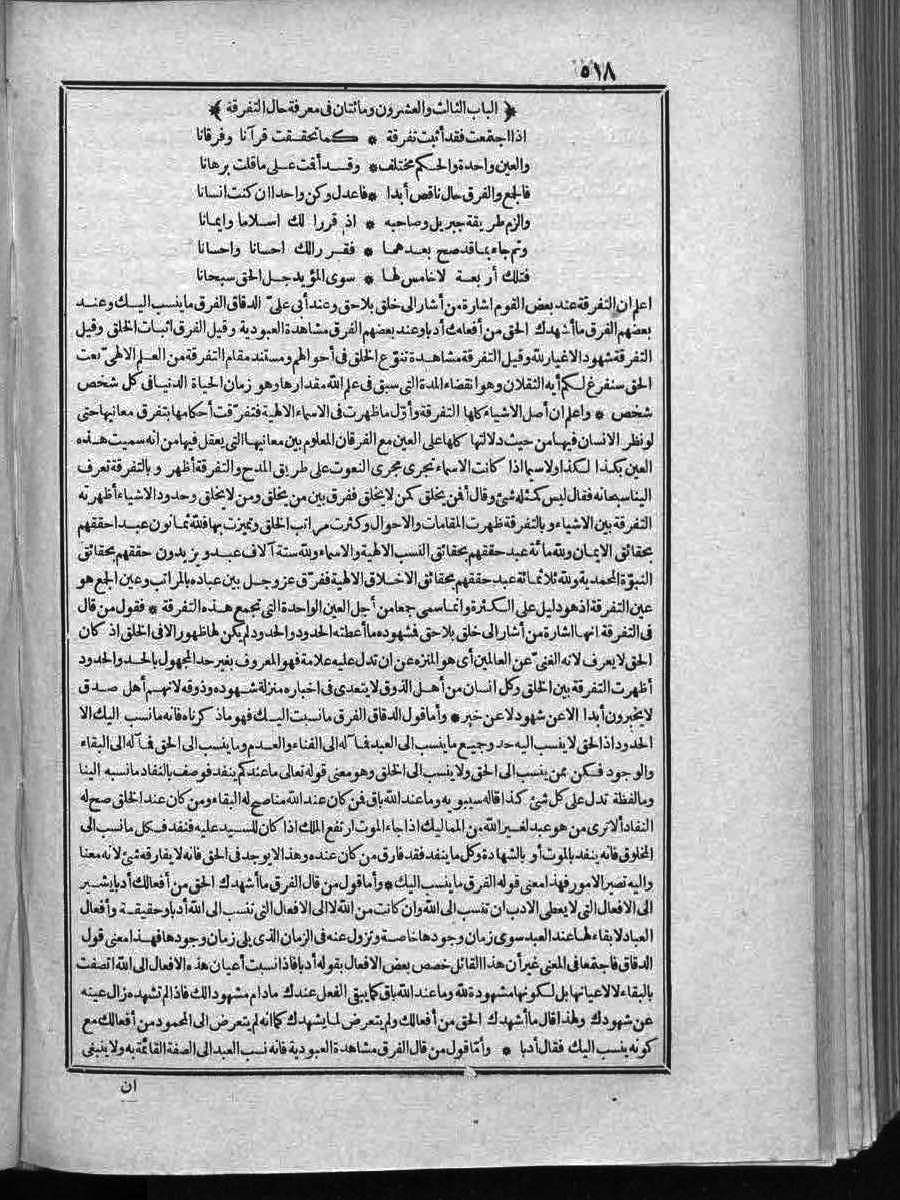 ٥١٨
﴿ الباب الثالث والعشرون ومائتان فى معرفة حال التفرقة ﴾
اذا اجتمعت فقد أثبت تفرقة * كما تحققت قرآنا وفرقانا
والعين واحدة والحكم مختلف * وقد أقت على ما قلت برهانا
فالجمع والفرق حال ناقص أبدا * فاعدل وكن واحدا ان كنت انسانا
والزم طريقة جبريل وصاحبه * اذ قررا لك اسلاما وايمانا
وتم جاء بما قد صح بعدهما * فقرر الك احسانا واحسانا
فتلك أربعة لا خامس لها * سوى المؤيد جل الحق سبحانا
اعلم ان التفرقة عند بعض القوم اشارة من أشار الى خلق بلا حق وعند أبى علىّ الدقاق الفرق ما ينسب اليك وعند
بعضهم الفرق ما أشهدك الحق من أفعالك أدبا وعند بعضهم الفرق مشاهدة العبودية وقيل الفرق اثبات الخلق وقيل
التفرقة شهود الاغيار لله وقيل التفرقة مشاهدة تنوّع الخلق فى أحوالهم ومستند مقام التفرقة من العلم الالهىّ نعت
الحق سنفرغ لكم أيه الثقلان وهو انقضاء المدة التى سبق فى علم الله مقدارها وهو زمان الحياة الدنيا فى كل شخص
شخص * واعلم ان أصل الاشياء كلها التفرقة وأوّل ما ظهرت فى الاسماء الالهية فتفرّقت أحكامها بتفرق معانيها حتى
لو نظر الانسان فيها من حيث دلالتها كلها على العين مع الفرقان المعلوم بين معانيها التى يعقل فيها من أنه سميت هذه
العين بكذا لكذا ولاسيما اذا كانت الاسماء تجرى مجرى النعوت على طريق المدح والتفرقة أظهر وبالتفرقة تعرف
الينا سبحانه فقال ليس كمثله شئ وقال أفمن يخلق كمن لا يخلق ففرق بين من يخلق ومن لا يخلق وحدود الاشياء أظهرته
التفرقة بين الاشياء وبالتفرقة ظهرت المقامات والاحوال وكثرت مراتب الخلق وتميزت بها فلله ثمانون عبدا حققهم
بحقائق الايمان ولله مائة عبد حققهم بحقائق النسب الالهية والاسماء ولله ستة آلاف عبد ويزيدون حققهم بحقائق
النبوّة المحمدية ولله ثلاثمائة عبد حققهم بحقائق الاخلاق الالهية ففرّق عز وجل بين عباده بالمراتب وعين الجمع هو
عين التفرقة اذ هو دليل على الكثرة وانما سمى جعا من أجل العين الواحدة التى تجمع هذه التفرقة * فقول من قال
فى التفرقة انها اشارة من أشار الى خلق بلا حق فشهوده ما أعطته الحدود والحدود لم يكن لها ظهور الا فى الخلق اذ كان
الحق لا يعرف لانه الغنىّ عن العالمين أى هو المنزه عن ان تدل عليه علامة فهو المعروف بغير حد المجهول بالحد والحدود
أظهرت التفرقة بين الخلق وكل انسان من أهل الذوق لا يتعدى فى اخباره منزلة شهوده وذوقه لانهم أهل صدق
لا يخبرون أبدا الا عن شهود لا عن خبر * وأما قول الدقاق الفرق ما نسبت اليك فهو ما ذكرناه فانه ما نسب اليك الا
الحدود اذ الحق لا ينسب اليه حد وجميع ما ينسب الى العبد فآله الى الفناء والعدم وما ينسب الى الحق فآله الى البقاء
والوجود فكن ممن ينسب الى الحق ولا ينسب الى الخلق وهو معنى قوله تعالى ما عندكم ينفد فوصف بالنفاد ما نسبه الينا
وما لفظة تدل على كل شئ كذا قاله سيبويه وما عند الله باق فمن كان عند الله منا صح له البقاء ومن كان عند الخلق صح له
النفاد ألا ترى من هو عبد لغير الله من المماليك اذا جاء الموت ارتفع الملك اذا كان للسيد عليه فنفد فكل ما نسب الى
المخلوق فانه ينفد بالموت أو بالشهادة وكل ما ينفد فقد فارق من كان عنده وهذا لا يوجد فى الحق فانه لا يفارقه شئ لانه معنا
واليه تصير الامور فهذا معنى قوله الفرق ما ينسب اليك * وأما قول من قال الفرق ما أشهدك الحق من أفعالك أدبا يشير
الى الافعال التى لا يعطى الادب ان تنسب الى الله وان كانت من الله لا الى الافعال التى تنسب الى الله أدبا وحقيقة وأفعال
العباد لا بقاء لها عند العبد سوى زمان وجودها خاصة وتزول عنه فى الزمان الذى يلى زمان وجودها فهذا معنى قول
الدقاق فاجتمعا فى المعنى غير أن هذا القائل خصص بعض الافعال بقوله أدبا فاذا نسبت أعيان هذه الافعال الى الله اتصفت
بالبقاء لا لاعيانها بل لكونها مشهودة لله وما عند الله باق كما يبقى الفعل عندك مادام مشهودا لك فاذا لم تشهده زال عينه
عن شهودك ولهذا قال ما أشهدك الحق من أفعالك ولم يتعرض لما يشهدك كما انه لم يتعرض الى المحمود من أفعالك مع
كونه ينسب اليك فقال أدبا * وأمّا قول من قال الفرق مشاهدة العبودية فانه نسب العبد الى الصفة القائمة به ولا ينبغى
ان